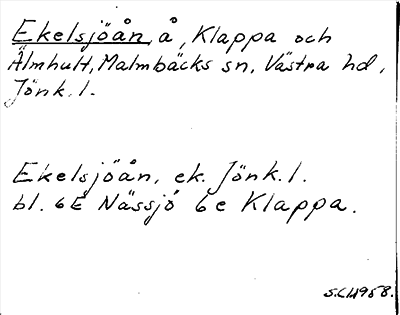 Ekelsjöån, å, Klappa och
Älmhult, Malmbäcks sn, Västra hd,
Jönk. l.
Ekelsjöån, ek. Jönk. l.
bl. 6E Nässjö 6e Klappa.